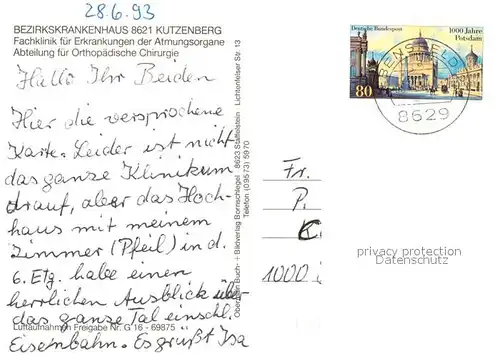 28.6.93
BEZIRKSKRANKENHAUS 8621 KUTZENBERG
Fachklinik für Erkrankungen der Atmungsorgane
Abteilung für Orthopädische Chirurgie
Hallo Ihr Beiden
Hier die versprochene
Karte. Leider ist nicht
das ganze Klinikum
drauf, aber das Hoch-
haus mit meinem
Zimmer (Pfeil) in d.
6. Etg. habe einen
herrlichen Ausblick über
das ganze Tal einschl.
Luftaufnahmen Freigabe Nr. G 16 - 69875
Eisenbahn. Es grüßt Isa
Buch- + Bildverlag Bornschlegel 8623 Staffelstein Lichtenfelser Str. 13
Telefon (09573) 5970
Deutsche Bundespost
1000 Jahre
Potsdam
80
8629
Fr.
P.
K.
1000
privacy protection
Datenschutz